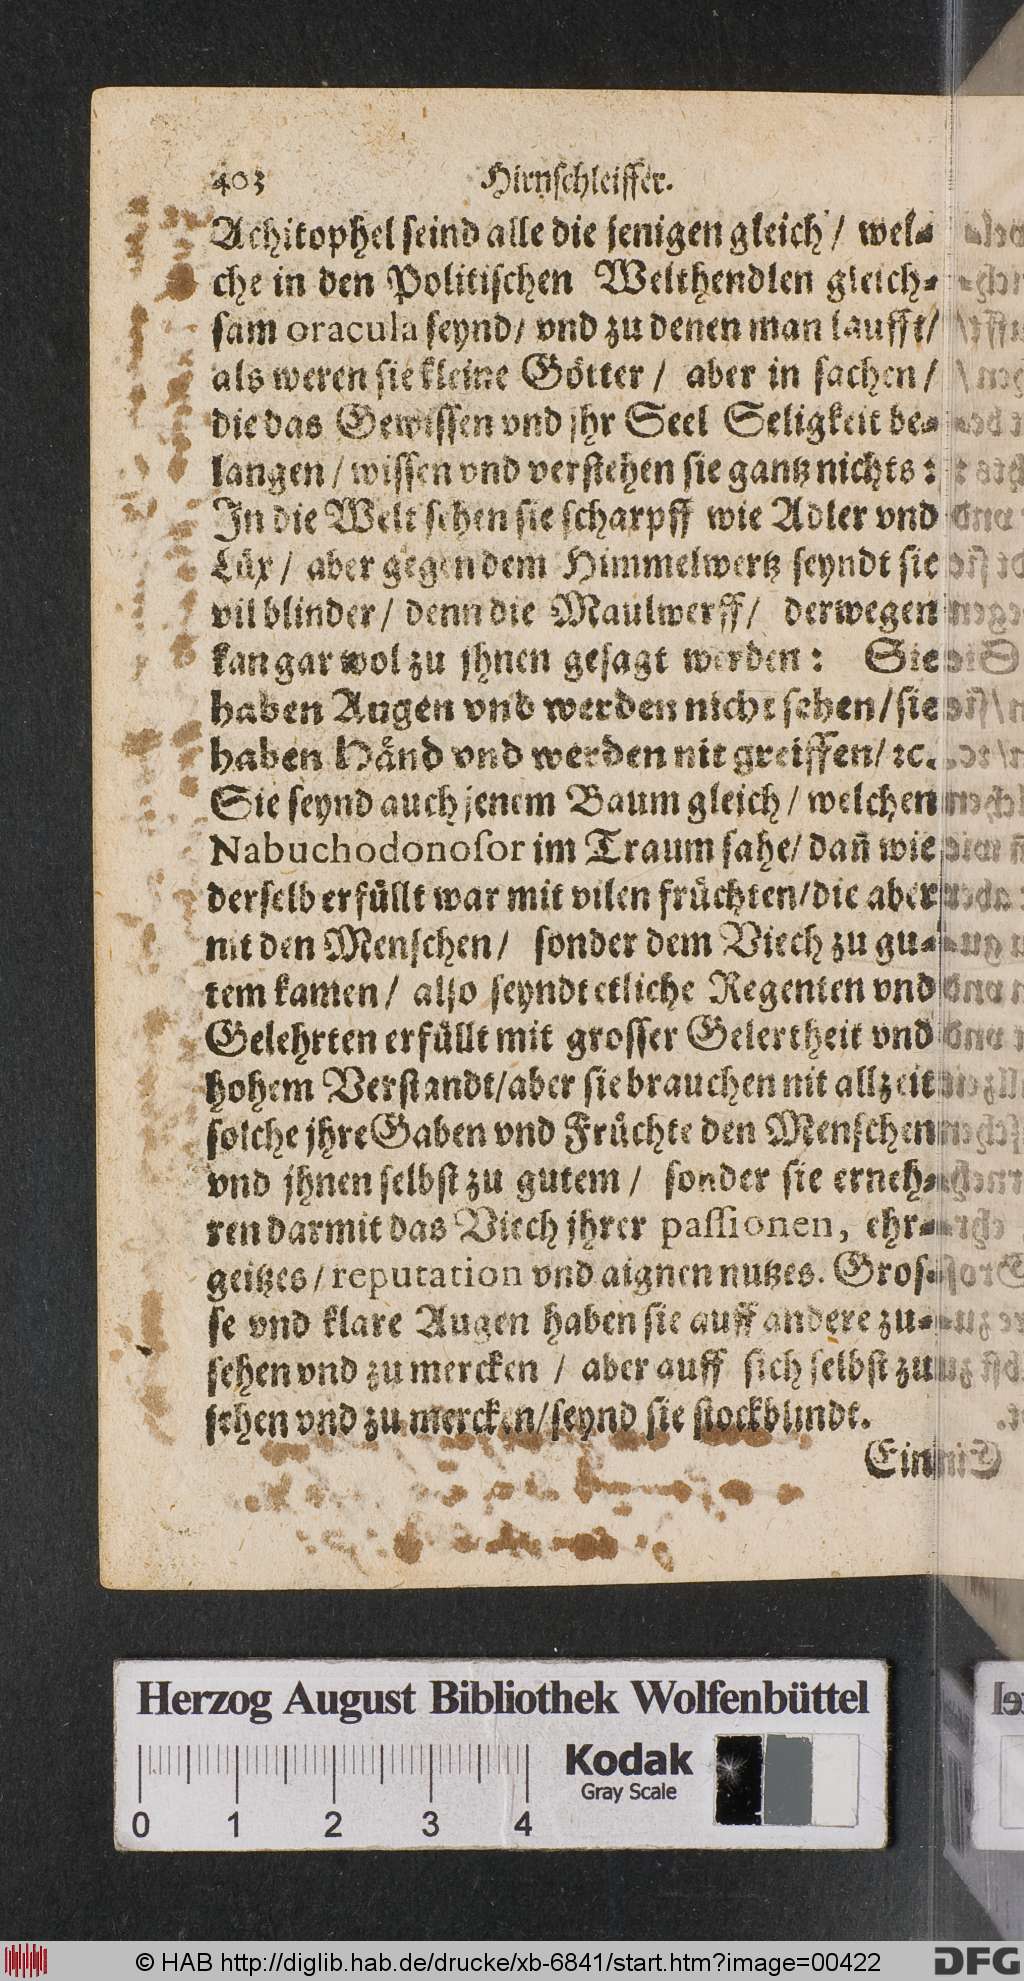 403 Hirnschleiffer.
Achitophel seind alle die jenigen gleich / wel-
che in den Politischen Welthendlen gleich-
sam oracula seynd / vnd zu denen man laufft /
als weren sie kleine Götter / aber in sachen /
die das Gewissen vnd jhr Seel Seligkeit be-
langen / wissen vnd verstehen sie gantz nichts:
In die Welt sehen sie scharpff wie Adler vnd
Lüx / aber gegen dem Himmelwertz seyndt sie
vil blinder / denn die Maulwerff / derwegen
kan gar wol zu jhnen gesagt werden: Sie
haben Augen vnd werden nicht sehen / sie
haben Händ vnd werden nit greiffen / ꝛc.
Sie seynd auch jenem Baum gleich / welchen
Nabuchodonosor im Traum sahe / dañ wie
derselb erfüllt war mit vilen früchten / die aber
nit den Menschen / sonder dem Viech zu gu-
tem kamen / also seyndt etliche Regenten vnd
Gelehrten erfüllt mit grosser Gelertheit vnd
hohem Verstandt / aber sie brauchen nit allzeit
solche jhre Gaben vnd Früchte den Menschen
vnd jhnen selbst zu gutem / sonder sie erneh-
ren darmit das Viech jhrer passionen, ehr-
geitzes / reputation vnd aignen nutzes. Gros-
se vnd klare Augen haben sie auff andere zu-
sehen vnd zu mercken / aber auff sich selbst zu
sehen vnd zu mercken / seynd sie stockblindt.
Ein
Herzog August Bibliothek Wolfenbüttel
Kodak
Gray Scale
0 1 2 3 4
© HAB http://diglib.hab.de/drucke/xb-6841/start.htm?image=00422
DFG